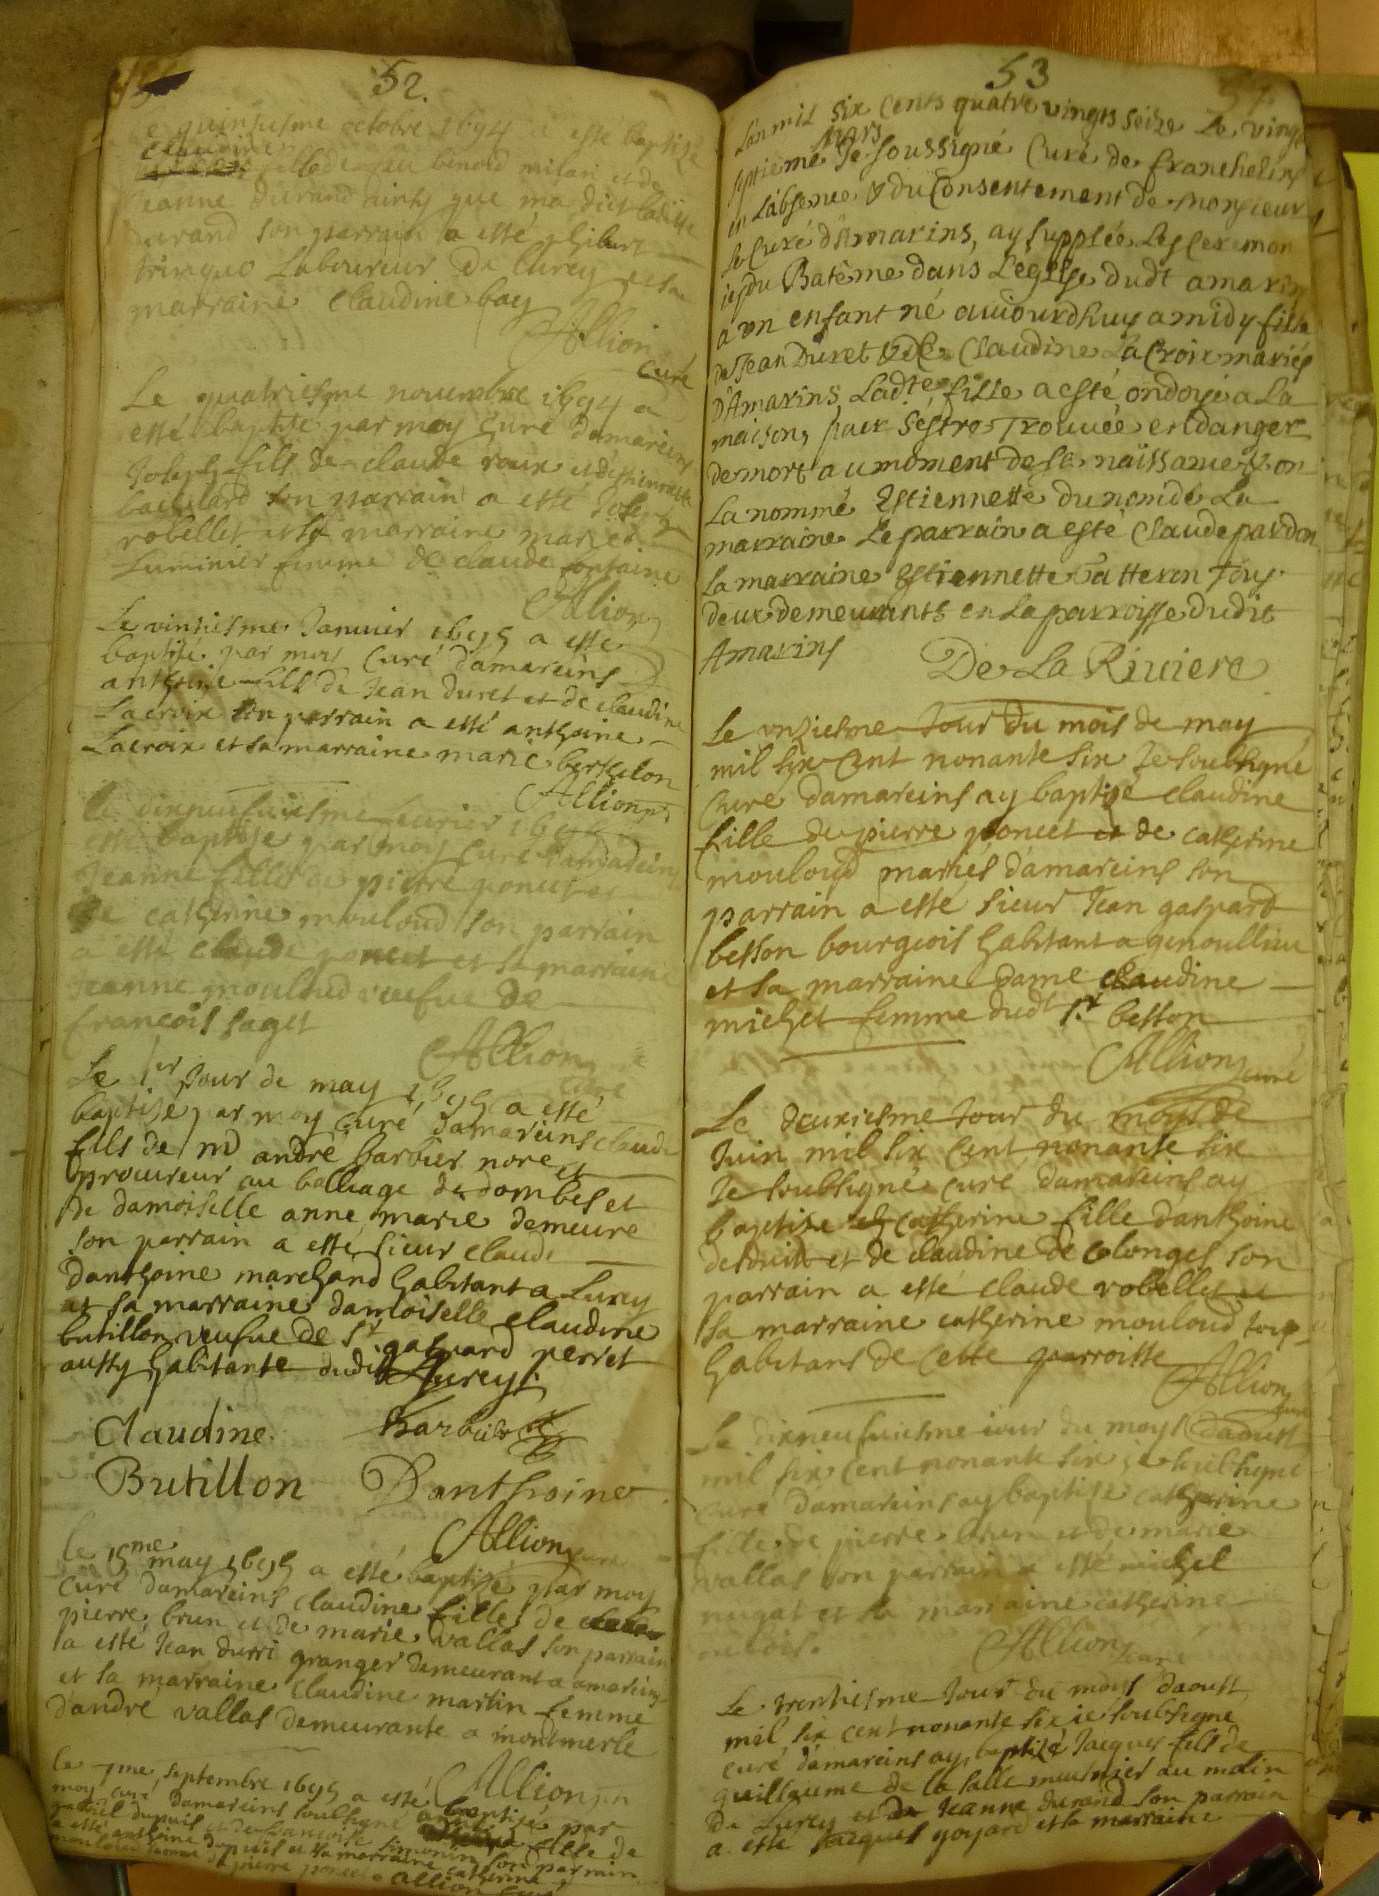 52.
quinsiesme octobre 1694 a esté baptizé
claudine
fille de feu benoid milan et de
Jeanne durand
durand son parrain a esté gilbert
laboureur de lurcy et sa
marraine claudine bay
Allion
curé
Le quatriesme novembre 1694 a
esté baptisé par moy curé damareins
Joseph fils de claude roux et destiennette
son parrain a esté Joseph
robellet et sa marraine marie
Luminier femme de claude fontaine
Allion
Le vintiesme Janvier 1695 a esté
baptisé par moy curé damareins
anthoine fils de Jean duret et de claudine
Lacroix son parrain a esté anthoine
Lacroix et sa marraine marie berthelon
Allion
le dixneufuiesme feurier 1695
esté baptisé par moy curé damareins
Jeanne fille de pierre poncet et
de catherine mouloud son parrain
a esté claude poncet et sa marraine
Jeanne mouloud veufue de
francois saget
Allion
curé
Le 1er Jour de may 1695 a esté
baptisé par moy curé damareins claude
fils de md andré barbier nore et
procureur au balliage de dombes et
de damoiselle anne marie demeure
son parrain a esté sieur claude
danthoine marchand habitant a Lurcy
et sa marraine damoiselle claudine
butillon veufue de sr gaspard perret
aussy habitante dudit Lurcy
Claudine Barbier
Butillon Danthoine
Allion curé
le 15me may 1695 a esté baptisé par moy
curé damareins claudine fille de
pierre brun et de marie vallas son parrain
a esté Jean durri granger demeurant a amareins
et sa marraine claudine martin femme
dandré vallas demeurante a montmerle
Allion
le 7me septembre 1695 a esté baptisé par
moy curé damareins soubsigné fille de
dupuis et de simonin son parrain
a esté anthoine dupuis et sa marraine catherine
mouloud femme de pierre poncet Allion curé
53
Lan mil six cents quatre vingts seize Le vingt
mars
septieme Je soussigné Curé de franchelins
en Labsence & du Consentement de Monsieur
le Curé dAmarins, ay supplée Les ceremon
ies du Batême dans Leglise dudt amarins
a un enfant né aujourdhuy a midy fille
de Jean Duret & de Claudine La Croix mariés
DAmarins Ladte fille a esté ondoyé a La
maison, pour Sestre Trouvée en danger
de mort au moment de sa naissance & on
La nommé Estiennette du nom de La
marraine Le parrain a esté Claude pardon
La marraine Estiennette Gatteron Tous
deux demeurants en La parroisse dudit
Amarins De La Riviere
Le onziesme Jour du mois de may
mil six cent nonante six Je soubsigné
Curé damareins ay baptisé claudine
fille de pierre poncet et de catherine
mouloud mariés damareins son
parrain a esté sieur Jean gaspard
besson bourgeois habitant a genoullieu
et sa marraine dame claudine
michet femme dudt sr besson
Allion curé
Le deuxiesme Jour du moys de
Juin mil six cent nonante six
Je soubsigné curé damareins ay
baptisé catherine fille danthoine
desduit et de claudine de colonges son
parrain a esté claude robellet et
sa marraine catherine mouloud tous
habitans de cette parroisse
Allion
curé
Le dixneufuiesme iour du moys daoust
mil six cent nonante six ie soubsigné
curé damareins ay baptisé catherine
fille de pierre brun et de marie
vallas son parrain a esté michel
nugat et sa marraine catherine
Allion curé
Le trentiesme Jour du moys daoust
mil six cent nonante six ie soubsigné
curé damareins ay baptizé Jacques fils de
guillaume de la salle meusnier au molin
de Lurcy et de Jeanne durand son parrain
a esté Jacques goyard et sa marraine